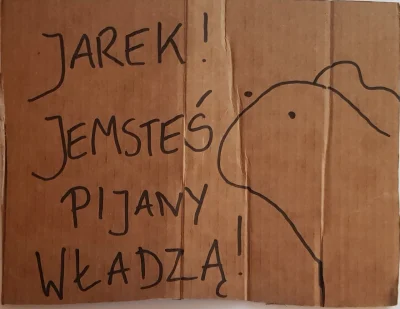 JAREK!
JEMSTEŚ
PIJANY
WŁADZĄ!